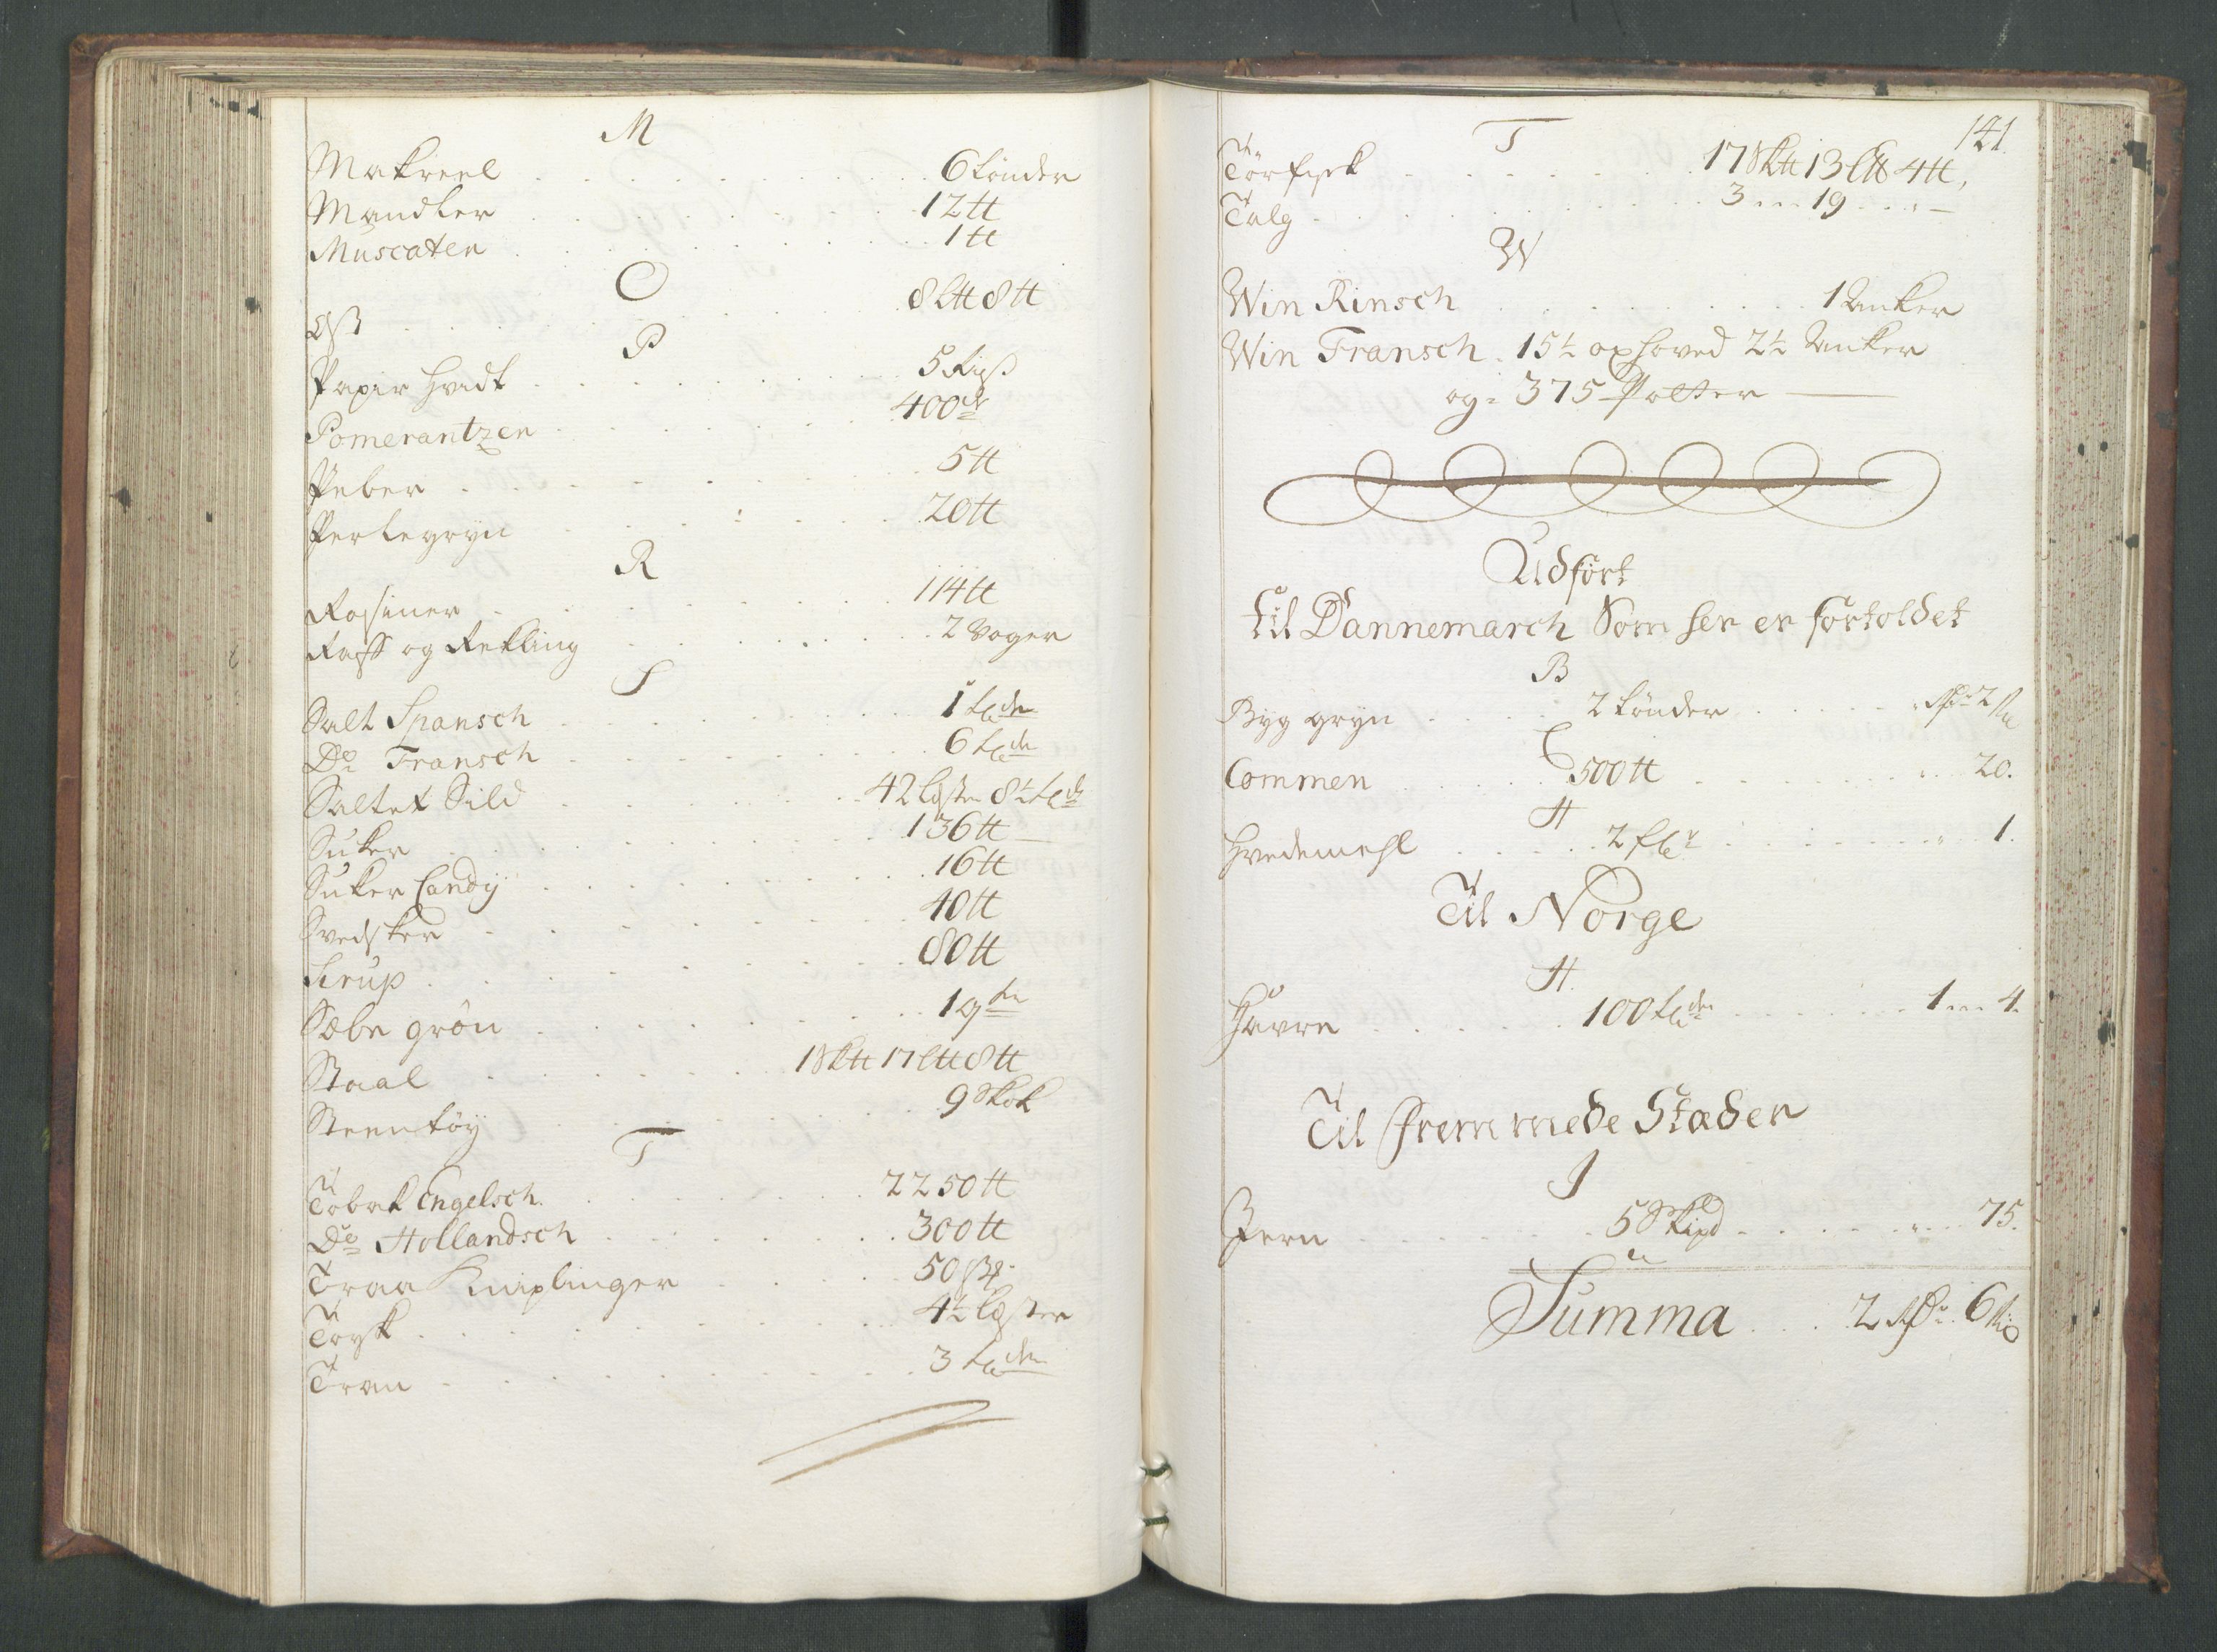 M
Makreel . . . . . . . . . . 6 tönder
Mandler . . . . . . . . . . 12 ℔
Muscaten . . . . . . . . . . 1 ℔
O
8 L℔ 8 ℔
Ost . . . . . . . . . .
P
Papir hvidt . . . . . . . . . . 5 Riss
Pomerantzen . . . . . . . . . . 400 st
Peber . . . . . . . . . . 5 ℔
Perlegryn . . . . . . . . . . 20 ℔
R
Rosiner . . . . . . . . . . 114 ℔
Raff og Rekling . . . . . . . . 2 Voger
S
Salt Spansch . . . . . . . . . . 1 tde
Do Fransch . . . . . . . . . . 6 tdr
Saltet Sild . . . . . . . . 42 Læster 8½ tdr
Suker . . . . . . . . . . 136 ℔
Suker Candij . . . . . . . . . . 16 ℔
Svedsker . . . . . . . . . . 40 ℔
Sirup . . . . . . . . . . 80 ℔
Sæbe grön . . . . . . . . . . 1 qrt
Staal . . . . . . . . 1 Sk℔ 17 L℔ 8 ℔
Steentöÿ . . . . . . . . . . 9 Skok
T
Tobak Engelsch . . . . . . . . 2250 ℔
Do Hollandsch . . . . . . . . 300 ℔
Traa Kniplinger . . . . 50
Torsk . . . . . . . . 4½ Læster
Tran . . . . . . . . . . 3 tdr
141.
T
Törfisk . . . . . . . 17 Sk℔ 13 L℔ 4 ℔,
Talg . . . . . . . . . . 3 " 19 " –
W
Win Rinsch . . . . . . . . . . 1 Anker
Win Fransch . 15½ oxhoved 2½ Anker
og 375 Potter
Udfört
til Dannemarch Som her er fortoldet
B
Byg gryn . . . . 2 tönder . . . . . " 2
C
Commen . . . . 500 ℔ . . . . . . . . 20.
H
Hvedemehl . . . . . 2 . . . . . . . . " 1.
Til Norge
H.
Havre . . . . . 100 tdr . . . . . . 1 " 4.
Til fremmede Stæder
J
Jern . . . . . . 5 Skipd . . . . . " 75.
Summa . . . 2 Rdr 6